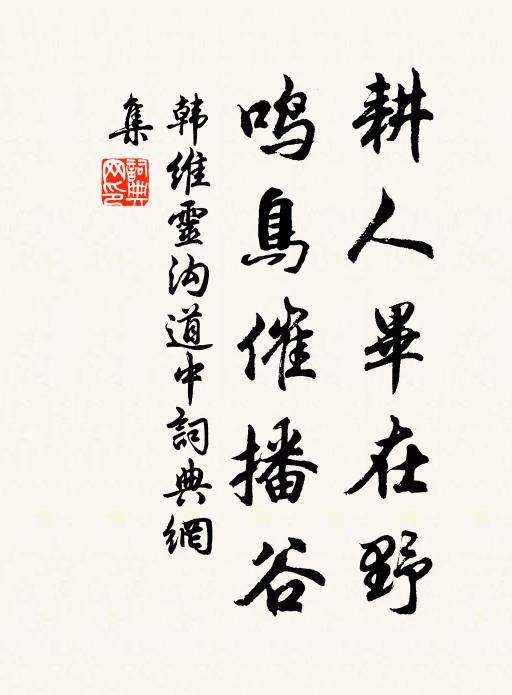 耕人畢在野
鳴鳥催播谷
韩維靈沟道中詞典網
集
詞典网印